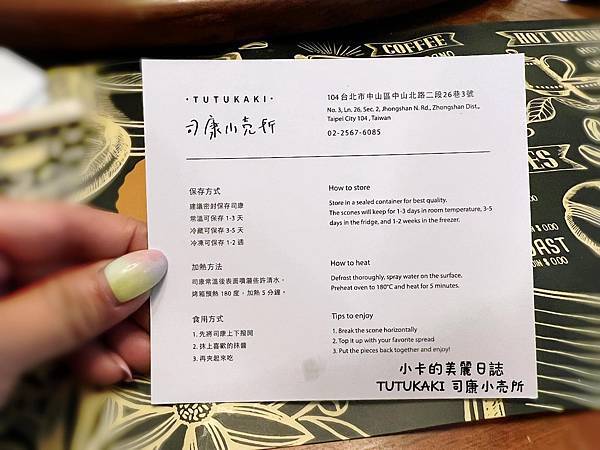 COFFEE
HOT DRIN
· TUTUKAKI ·
司康小売所
104 台北市中山區中山北路二段26巷3號
No. 3, Ln. 26, Sec. 2, Jhongshan N. Rd., Zhongshan Dist.,
Taipei City 104 , Taiwan
02-2567-6085
保存方式
建議密封保存司康
常溫可保存 1-3 天
冷藏可保存 3-5 天
冷凍可保存 1-2 週
How to store
Store in a sealed container for best quality.
The scones will keep for 1-3 days in room temperature, 3-5
days in the fridge, and 1-2 weeks in the freezer.
加熱方法
司康常溫後表面噴灑些許清水,
烤箱預熱 180 度,加熱 5 分鐘。
How to heat
Defrost thoroughly, spray water on the surface.
Preheat oven to 180°C and heat for 5 minutes.
食用方式
1. 先將司康上下掰開
2. 抹上喜歡的抹醬
3. 再夾起來吃
Tips to enjoy
1. Break the scone horizontally
2. Top it up with your favorite spread
3. Put the pieces back together and enjoy!
小卡的美麗日誌
TUTUKAKI 司康小売所